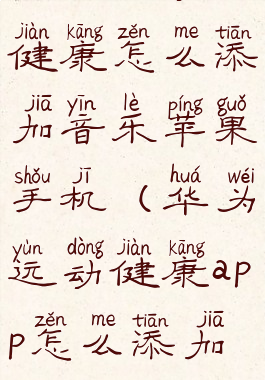 jiàn kāng zěn me tiān
健康怎么添
jiā yīn lè píng guǒ
加音乐苹果
shǒu jī huá wéi
手机（华为
yùn dòng jiàn kāng
运动健康ap
zěn me tiān jiā
p怎么添加